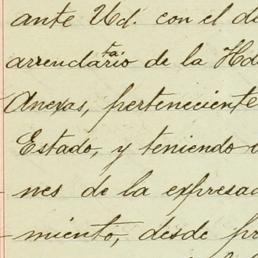 ante Ud. con el
arrendatario de la
Anexas, perteneciente
Estado, y teniendo
nes de la expresa
miento, desde